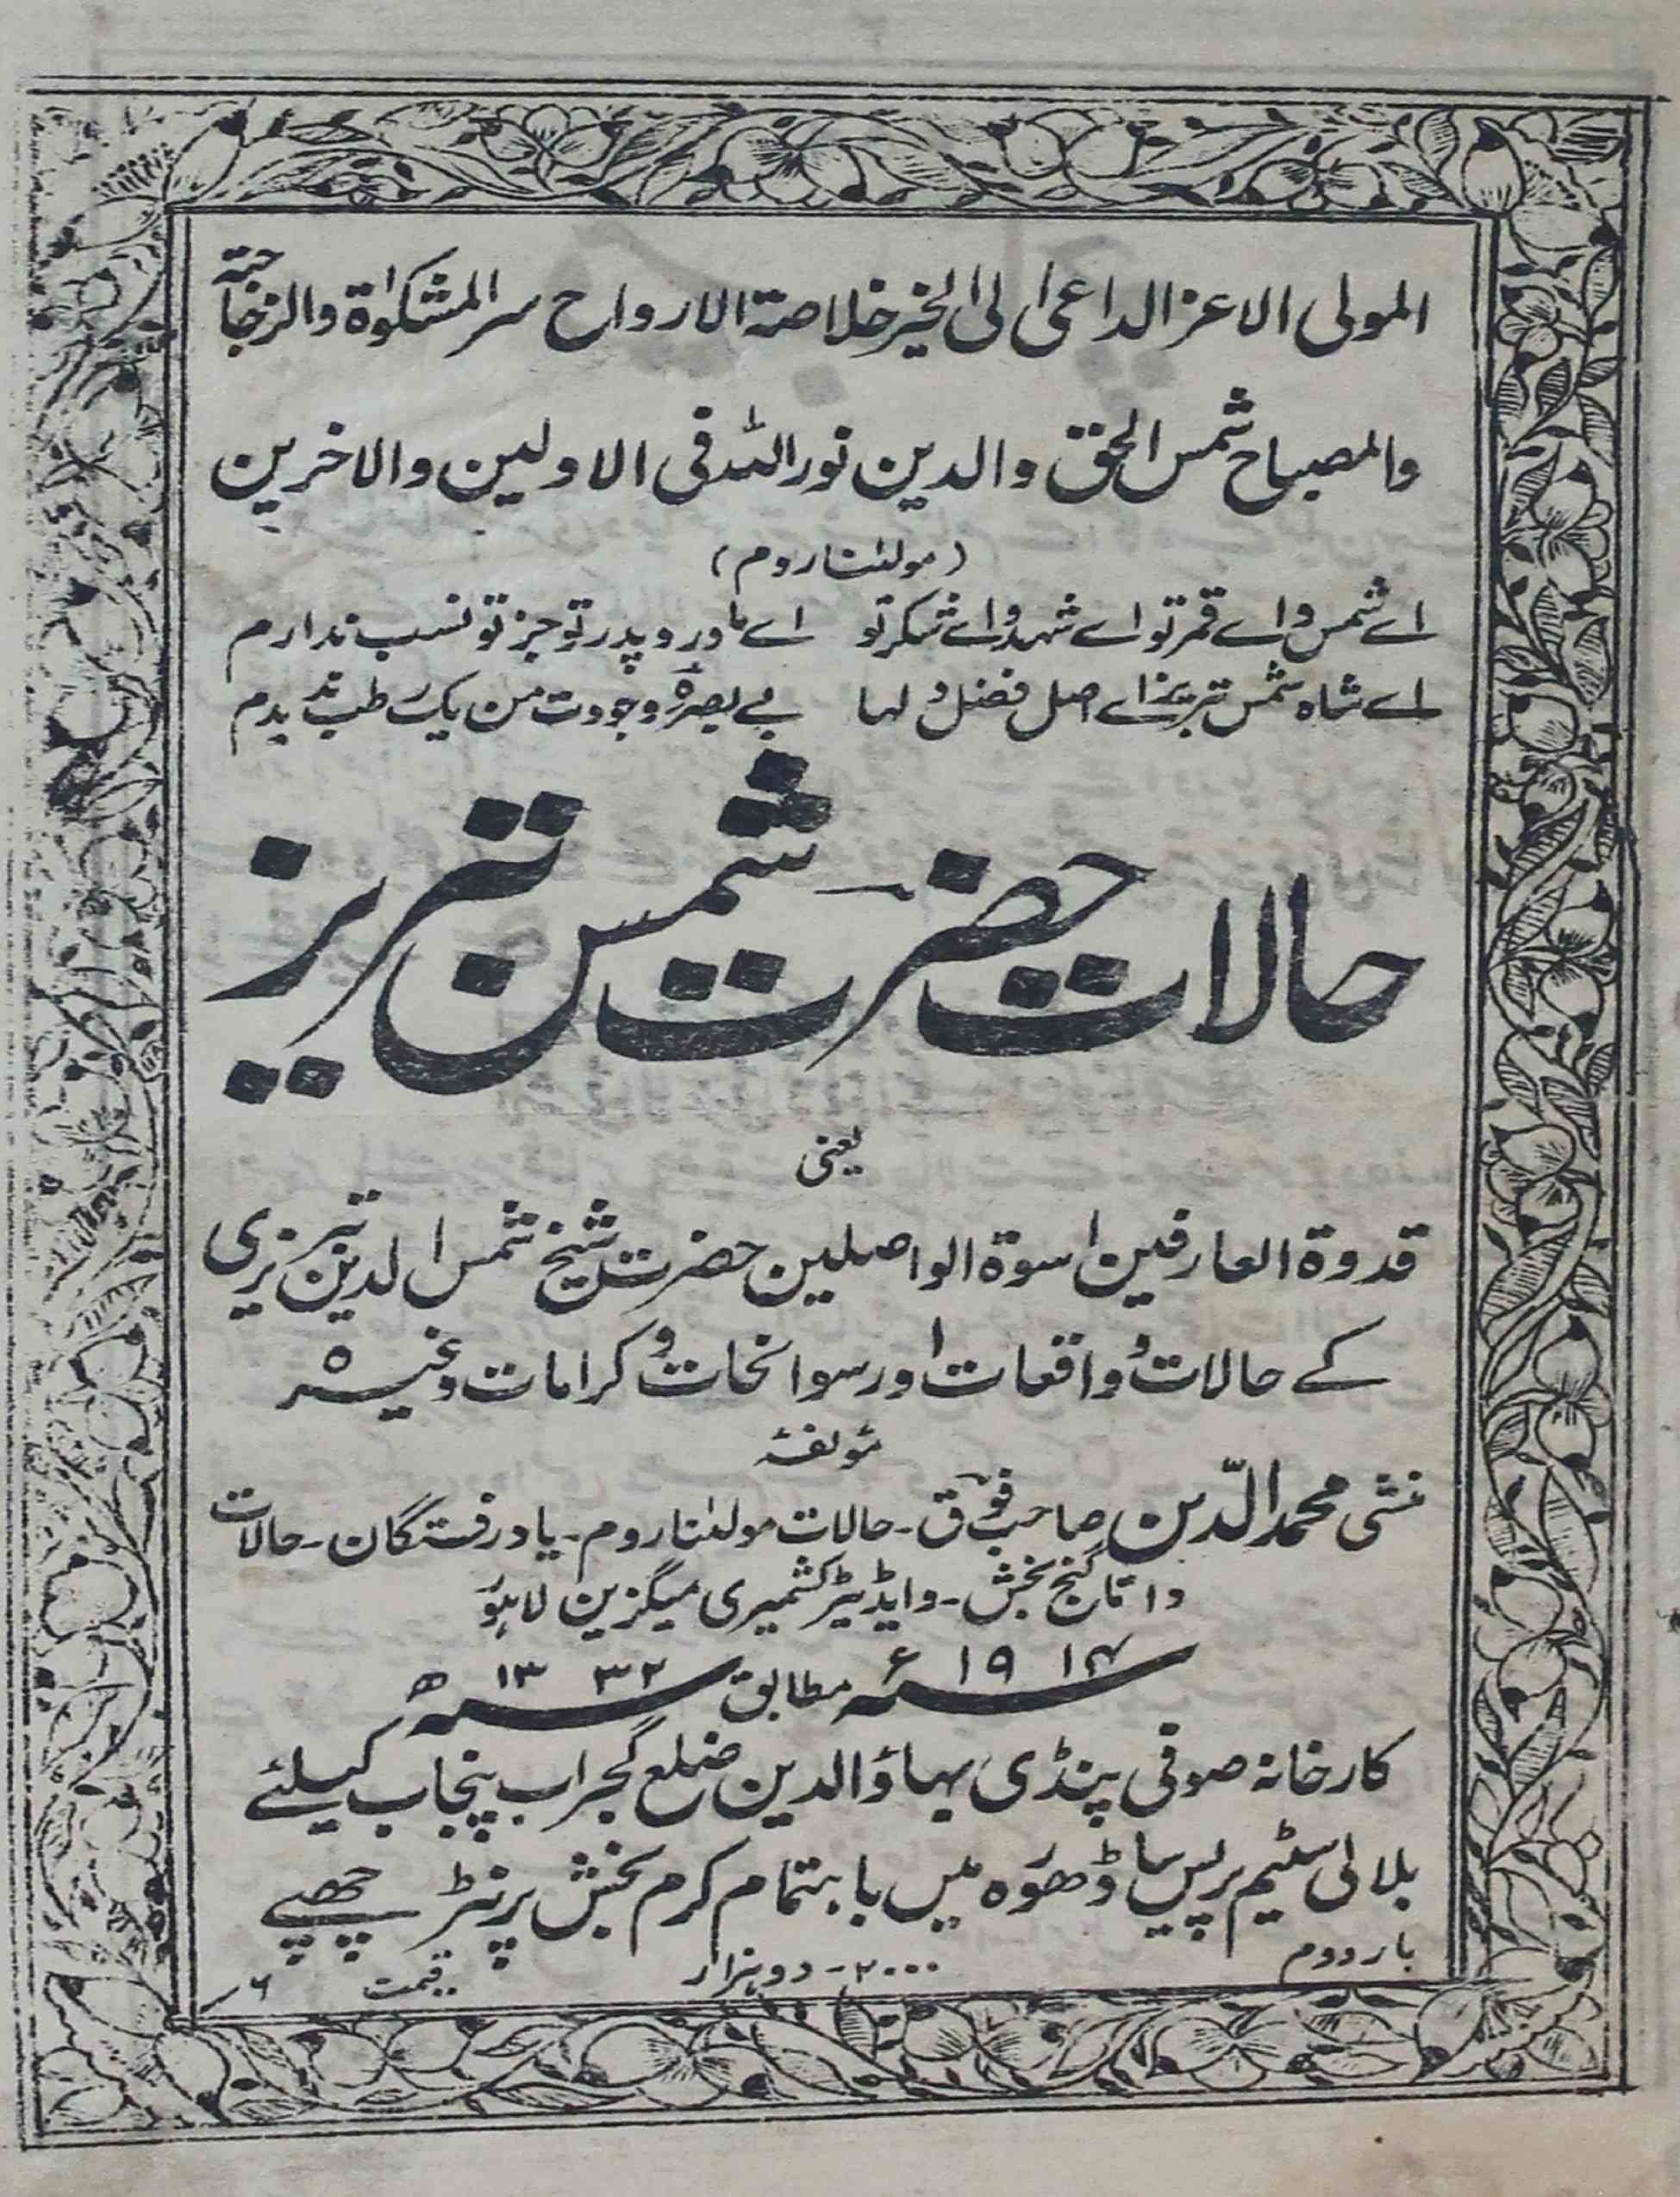 المولی الاعز الداعی الی الخیر خلاصة الارواح سر المشکوٰة والزجاجة
والمصباح شمس الحق والدین نور اللہ فی الاولین والاخرین
(مولٰنا روم)
اے شمس و اے قمر تو اے شہد و اے شکر تو اے مادر و پدر تو جز تو نسب ندارم
اے شاہ شمس تبریز اے اصل فضل و لہا بے بصرہ وجودت من یک رطب ندیدم
حالات حضرت شمس تبریز
یعنی
قدوة العارفین اسوة الواصلین حضرت شیخ شمس الدین تبریزی
کے حالات و واقعات اور سوانحات و کرامات وغیرہ
مولفہٗ
منشی محمد الدّین صاحب فوق۔ حالات مولٰنا روم۔ یاد رفتگان۔ حالات
داتا گنج بخش۔ و ایڈیٹر کشمیری میگزین لاہور
۱۹۱۴ء مطابق ۱۳۳۲ھ
کارخانہ صوفی پنڈی بہاؤالدین ضلع گجرات پنجاب کیلئے
بلالی سٹیم پریس ساڈھورہ میں باہتمام کرم بخش پرنٹر چھپے
بار دوم ۲۰۰۰۔ دو ہزار قیمت ۶؍